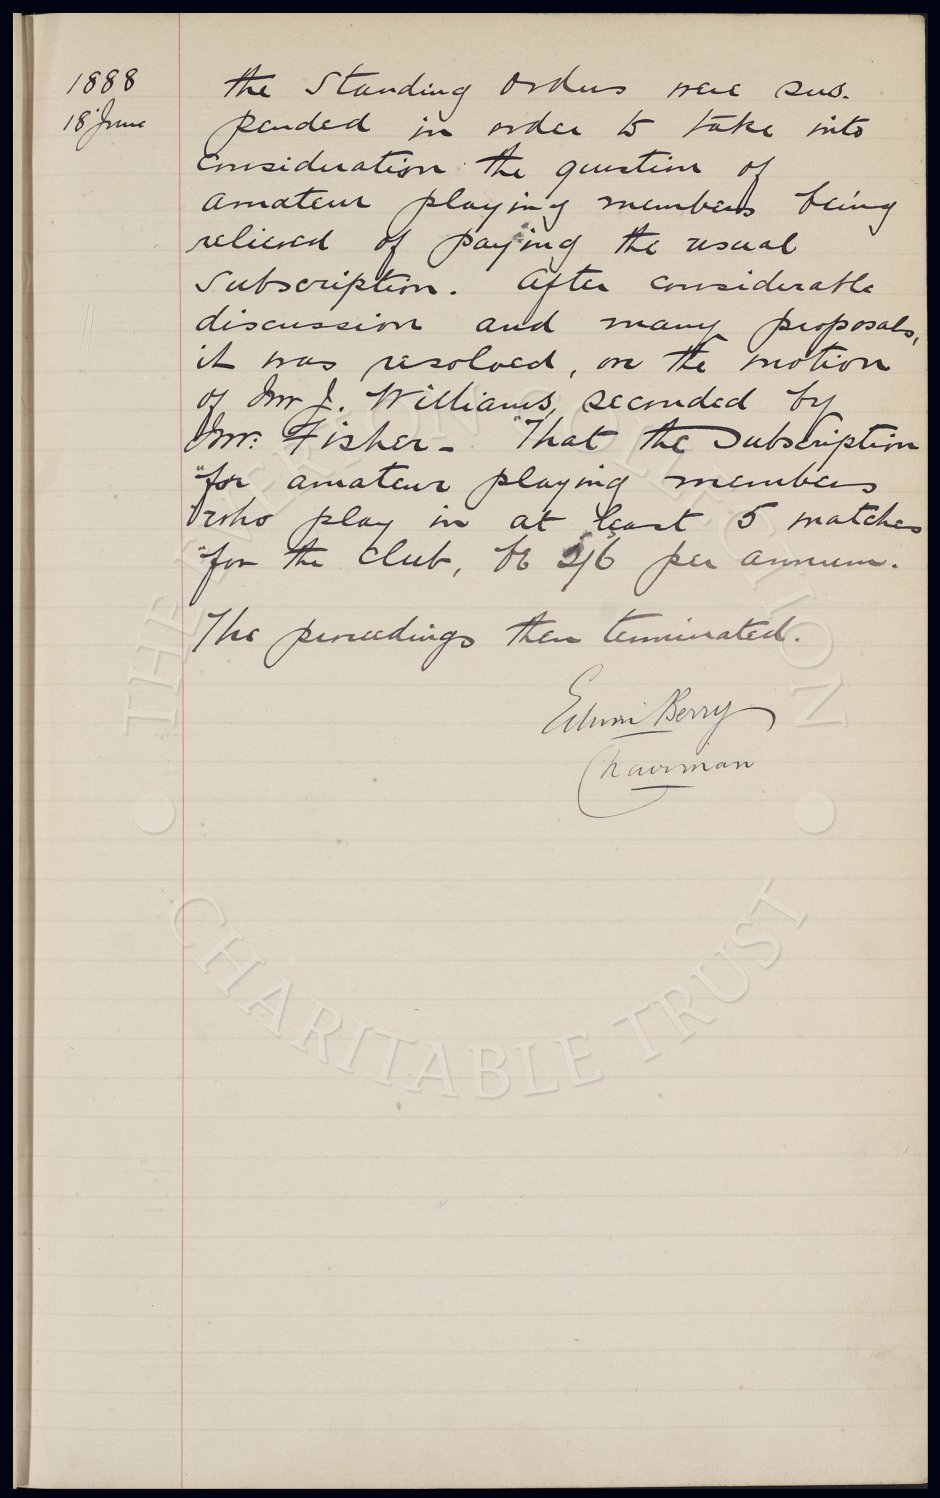 1888
18 June
the Standing Orders were sus-
pended in order to take into
consideration the question of
amateur playing members being
relieved of paying the usual
Subscription. After considerable
discussion and many proposals,
it was resolved, on the motion
of Mr J. Williams, seconded by
Mr. Fisher - "That the Subscription
"for amateur playing members
"who play in at least 5 matches
"for the Club, be 2/6 per annum.
The proceedings then terminated.
Edwin Berry
Chairman
THE EVERTON COLLECTION
CHARITABLE TRUST